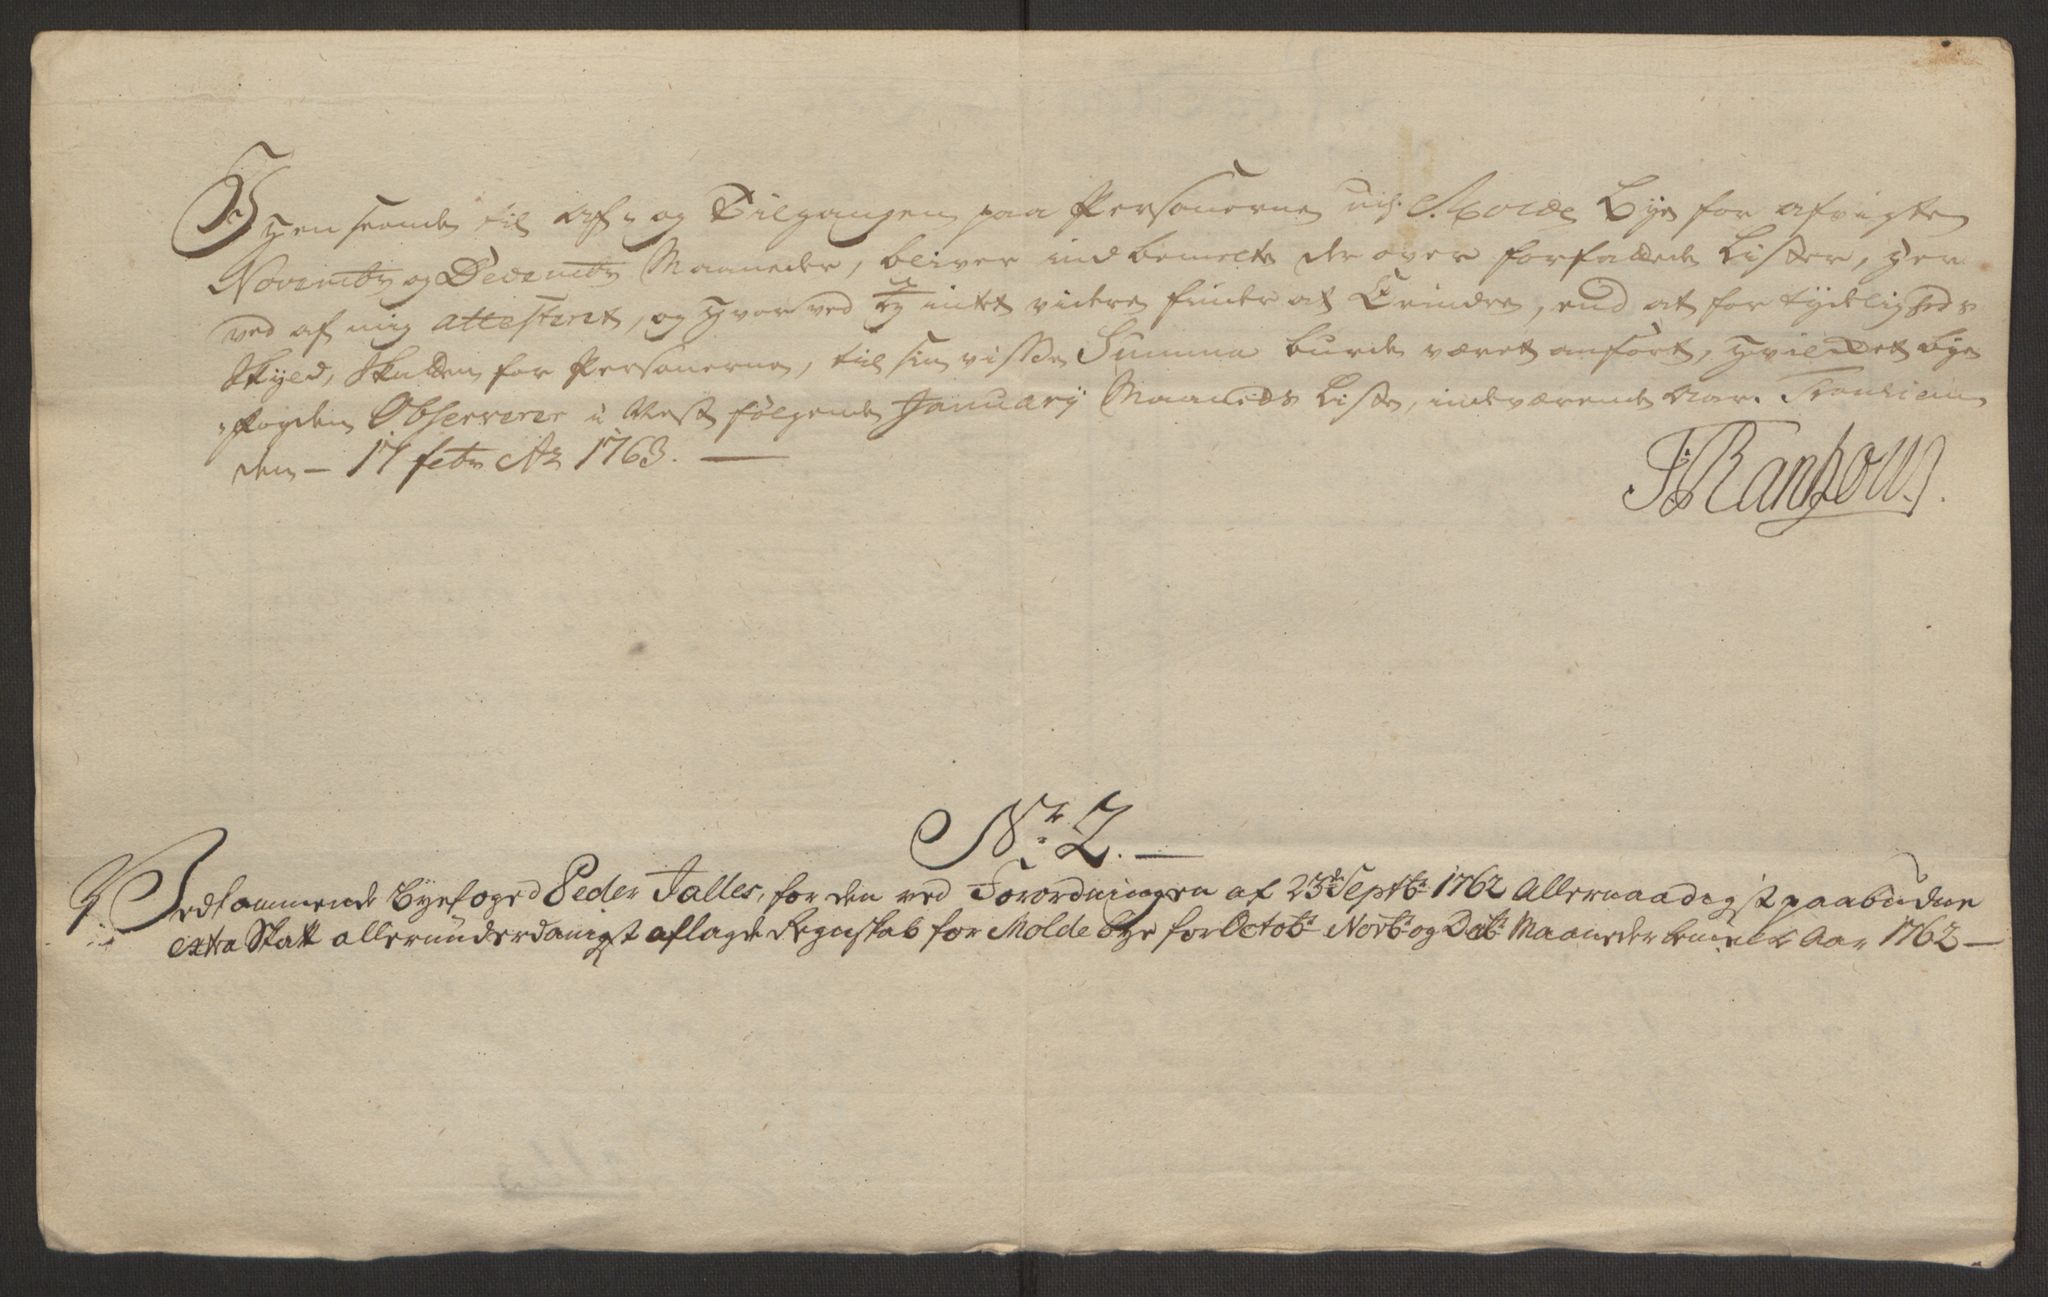 Henseende til Af- og Tilgangen paa Personerne udj Molde Bye for afvigte
Novembr og Decembr Maaneder, bliver indbemelte der over forfattede Lister, her
ved af mig attesteret, og hvorved ieg intet videre finder at Erindre, end at for tydeligheds
skyld, Skatten for Personerne, til sin visse Summa burde været anført, hvilcket bye
fogden Observerer i Næst følgende January Maaneds Liste, indeværende Aar. Tronhiem
den - 17 febr Ao 1763. -
Rantzow.
Nr. 2. -
Vedkommende Byefoged Peder Dalles, for den ved Forordningen af 23de Septbr 1762 Allernaadigst paabudne
extra Skatt allerunderdanigst aflagde Regnskab for Molde bye for Octobr Novbr og Decbr Maaneder bemelte Aar 1762 -